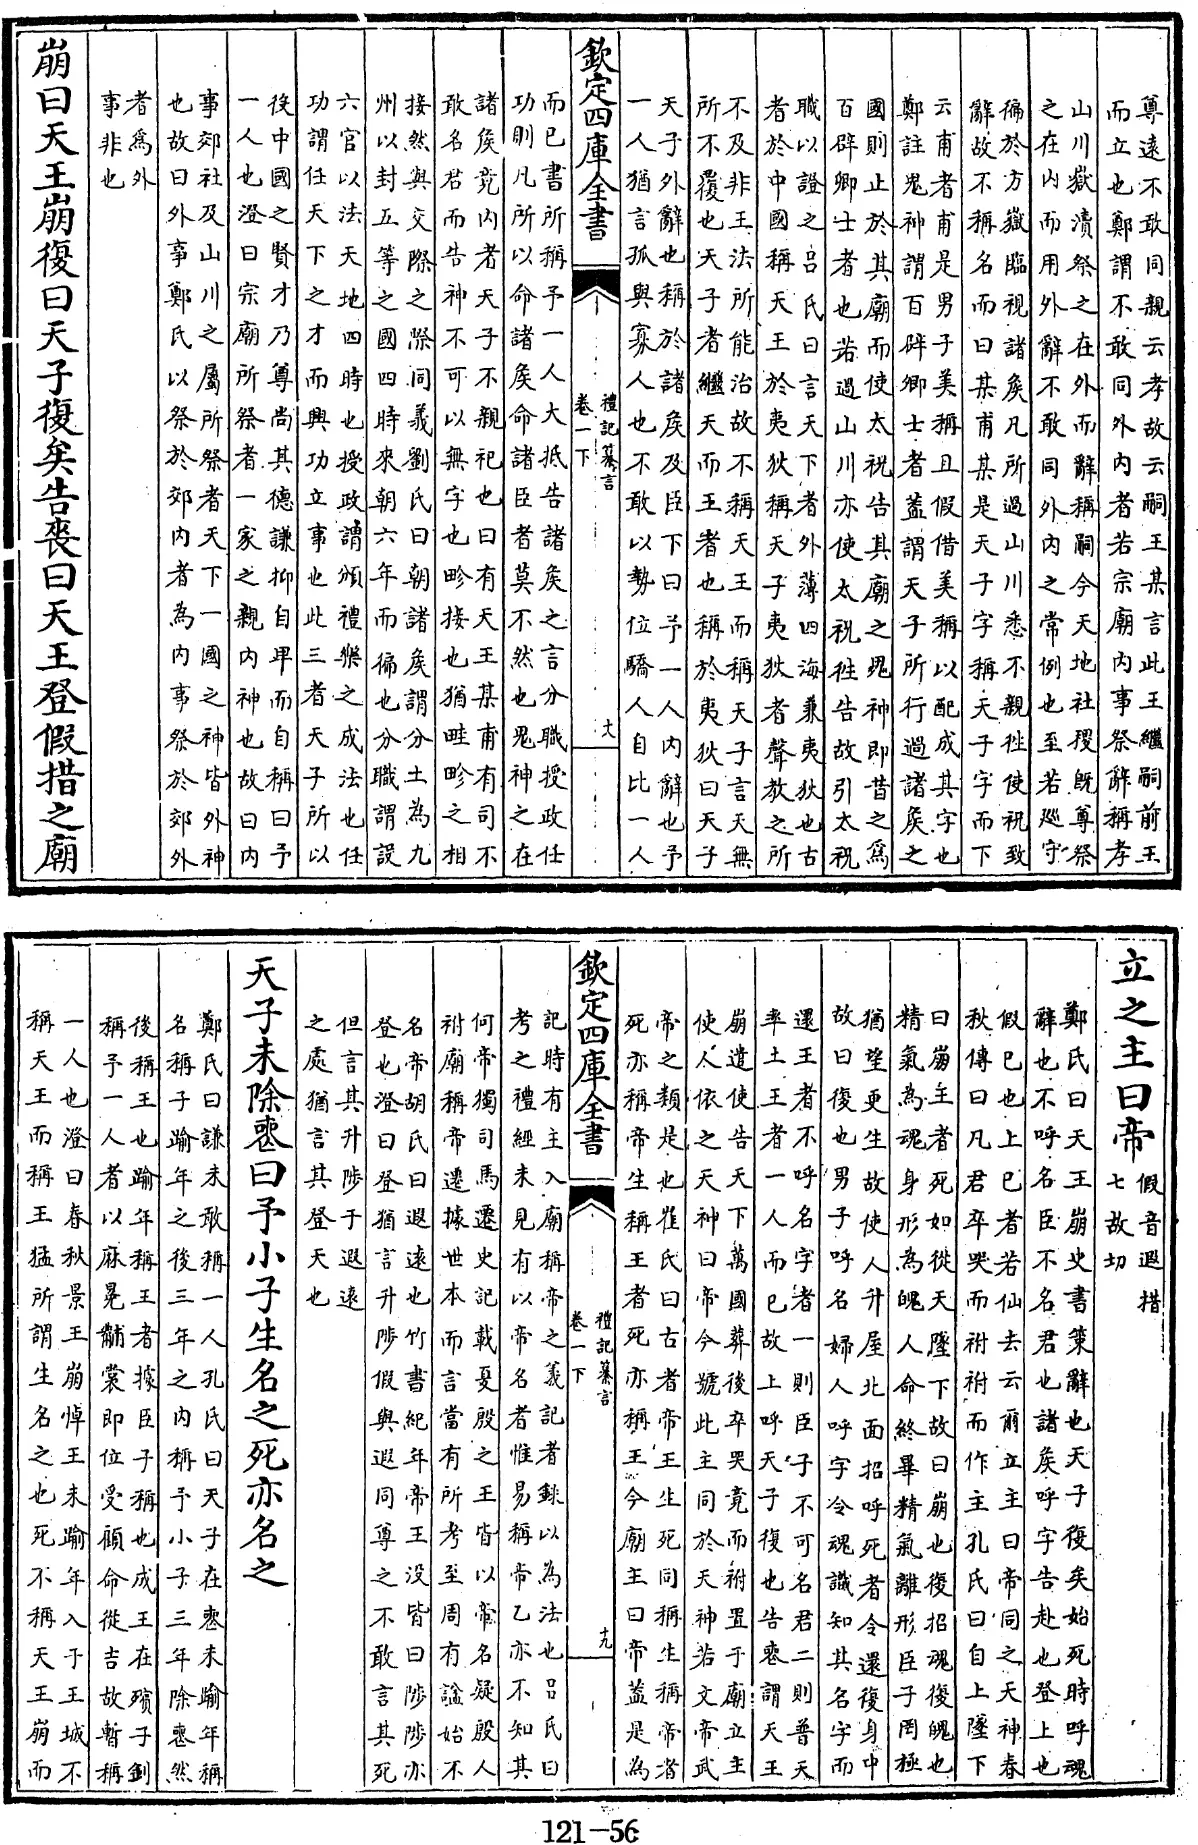 尊遠不敢同親云孝故云嗣王某言此王繼嗣前王
而立也鄭謂不敢同外内者若宗廟内事祭辭稱孝
山川嶽瀆祭之在外而辭稱嗣今天地社稷既尊祭
之在内而用外辭不敢同外内之常例也至若廵守
徧於方嶽臨視諸矦凡所過山川悉不親徃使祝致
辭故不稱名而曰某甫某是天子字稱天子字而下
云甫者甫是男子美稱且假借美稱以配成其字也
鄭註鬼神謂百辟卿士者蓋謂天子所行過諸矦之
國則止於其廟而使太祝告其廟之鬼神即昔之為
百辟卿士者也若過山川亦使太祝徃告故引太祝
職以證之呂氏曰言天下者外薄四海兼夷狄也古
者於中國稱天王於夷狄稱天子夷狄者聲教之所
不及非王法所能治故不稱天王而稱天子言天無
所不覆也天子者繼天而王者也稱於夷狄曰天子
天子外辭也稱於諸矦及臣下曰予一人内辭也予
一人猶言孤與寡人也不敢以勢位驕人自比一人
欽定四庫全書
禮記纂言
卷一下
十八
而已書所稱予一人大抵告諸矦之言分職授政任
功則凡所以命諸矦命諸臣者莫不然也鬼神之在
諸矦竟内者天子不親祀也曰有天王某甫有司不
敢名君而告神不可以無字也畛接也猶畦畛之相
接然與交際之際同義劉氏曰朝諸矦謂分土為九
州以封五等之國四時來朝六年而徧也分職謂設
六官以法天地四時也授政謂頒禮樂之成法也任
功謂任天下之才而興功立事也此三者天子所以
後中國之賢才乃尊尚其德謙抑自卑而自稱曰予
一人也澄曰宗廟所祭者一家之親内神也故曰内
事郊社及山川之屬所祭者天下一國之神皆外神
也故曰外事鄭氏以祭於郊内者為内事祭於郊外
者為外
事非也
崩曰天王崩復曰天子復矣告喪曰天王登假措之廟
立之主曰帝
假音遐措
七故切
鄭氏曰天王崩史書策辭也天子復矣始死時呼魂
辭也不呼名臣不名君也諸矦呼字告赴也登上也
假已也上已者若仙去云爾立主曰帝同之天神春
秋傳曰凡君卒哭而祔祔而作主孔氏曰自上墜下
曰崩主者死如從天墜下故曰崩也復招魂復魄也
精氣為魂身形為魄人命終畢精氣離形臣子罔極
猶望更生故使人升屋北面招呼死者令還復身中
故曰復也男子呼名婦人呼字令魂識知其名字而
還王者不呼名字者一則臣子不可名君二則普天
率土王者一人而已故上呼天子復也告喪謂天王
崩遣使告天下萬國葬後卒哭竟而祔置于廟立主
使人依之天神曰帝今號此主同於天神若文帝武
帝之類是也崔氏曰古者帝王生死同稱生稱帝者
死亦稱帝生稱王者死亦稱王今廟主曰帝蓋是為
欽定四庫全書
禮記纂言
卷一下
十九
記時有主入廟稱帝之義記者錄以為法也呂氏曰
考之禮經未見有以帝名者惟易稱帝乙亦不知其
何帝獨司馬遷史記載夏殷之王皆以帝名疑殷人
祔廟稱帝遷據世本而言當有所考至周有諡始不
名帝胡氏曰遐遠也竹書紀年帝王没皆曰陟陟亦
登也澄曰登猶言升陟假與遐同尊之不敢言其死
但言其升陟于遐遠
之處猶言其登天也
天子未除喪曰予小子生名之死亦名之
鄭氏曰謙未敢稱一人孔氏曰天子在喪未踰年稱
名稱子踰年之後三年之内稱予小子三年除喪然
後稱王也踰年稱王者據臣子稱也成王在殯子釗
稱予一人者以麻冕黼裳即位受顧命從吉故暫稱
一人也澄曰春秋景王崩悼王未踰年入于王城不
稱天王而稱王猛所謂生名之也死不稱天王崩而
121-56